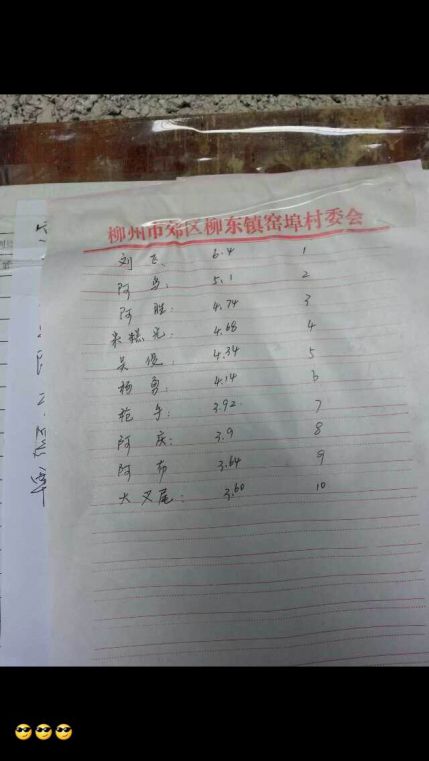 柳州市郊区柳东镇窑埠村委会
刘飞 6.4 1
阿鸟: 5.1 2
阿胜: 4.74 3
4.68 4
吴俊: 4.34 5
杨勇: 4.14 6
3.92 7
阿庆: 3.9 8
阿布 3.64 9
大叉尾: 3.60 10